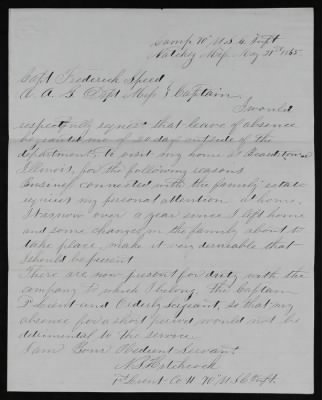 Camp 70" U.S.C. Inft
Natchez Miss. Aug 21st 1865
Capt Frederick Speed
A. A. G. Dept Miss } Captain,
I would
respectfully request that leave of absence
be granted me of 30 days outside of the
department, to visit my home at
Illinois, for the following reasons
Business connected with the family estate
requires my personal attention at home.
It is now over a year since I left home
and some changes in the family about to
take place, make it very desirable that
I should be present
There are now present for duty with the
company to which I belong, the Captain
2" Lieut and Orderly Sergeant, so that my
absence for a short period would not be
detrimental to the service
I am Your Obedient Servant
N. S. Hitchcock
1st Lieut Co H 70" U.S.C. Inft.